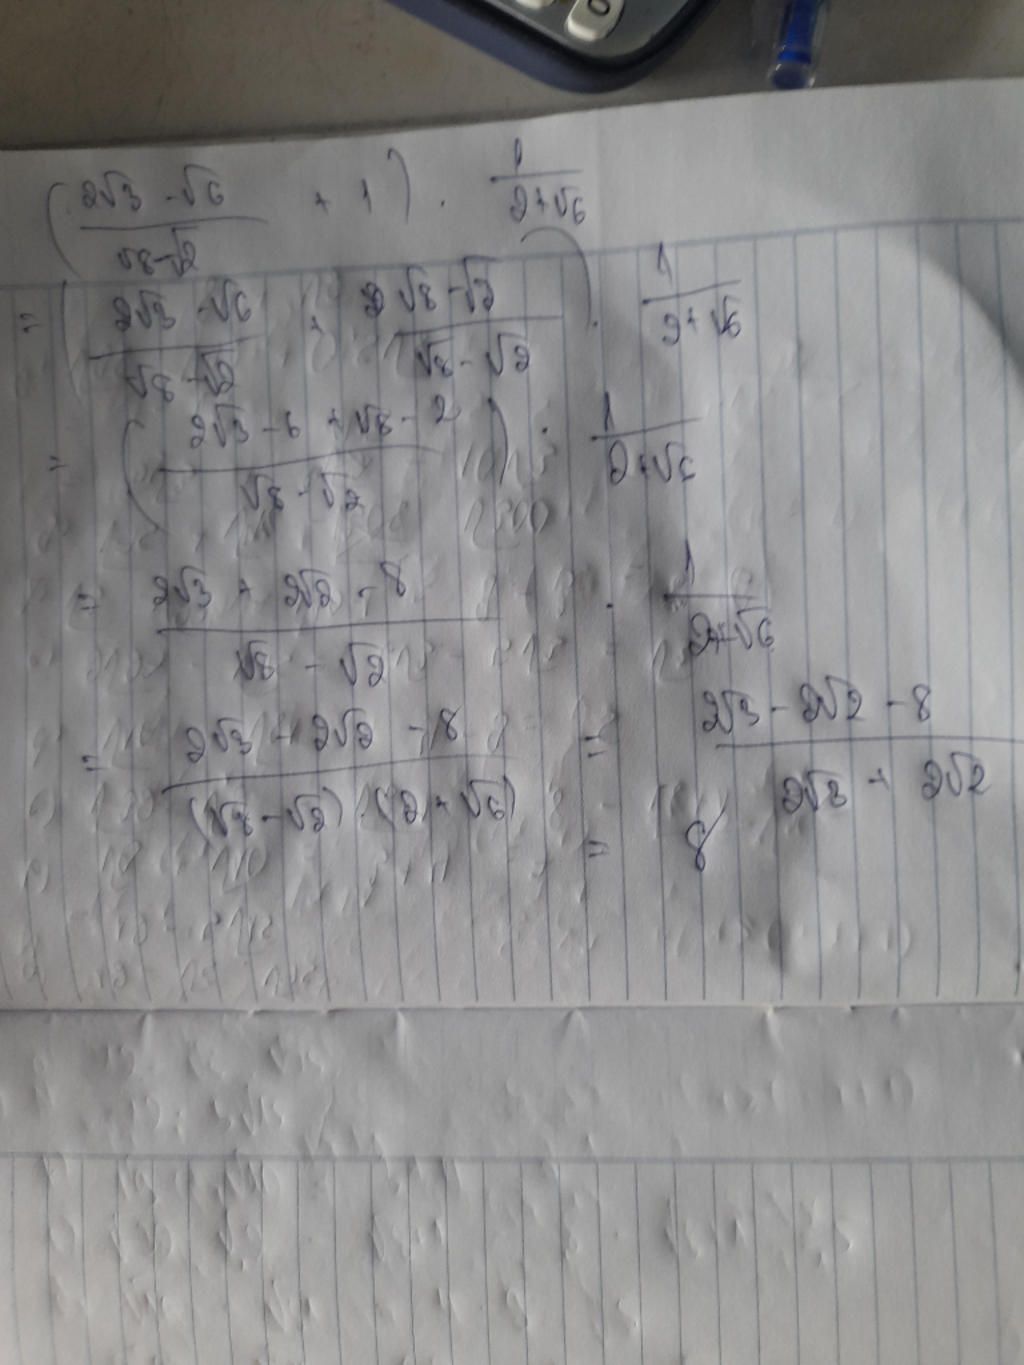 (2√3 - √6 / √8 - √2 + 1) . 1 / 2 + √6
= (2√3 - √6 / √8 - √2 + √8 - √2 / √8 - √2) . 1 / 2 + √6
= (2√3 - 6 + √8 - 2 / √8 - √2) . 1 / 2 + √6
= 2√3 + 2√2 - 8 / √8 - √2 . 1 / 2 + √6
= 2√3 - 2√2 - 8 / (√8 - √2) . (2 + √6) = 2√3 - 2√2 - 8 / 2√3 + 2√2
= 8